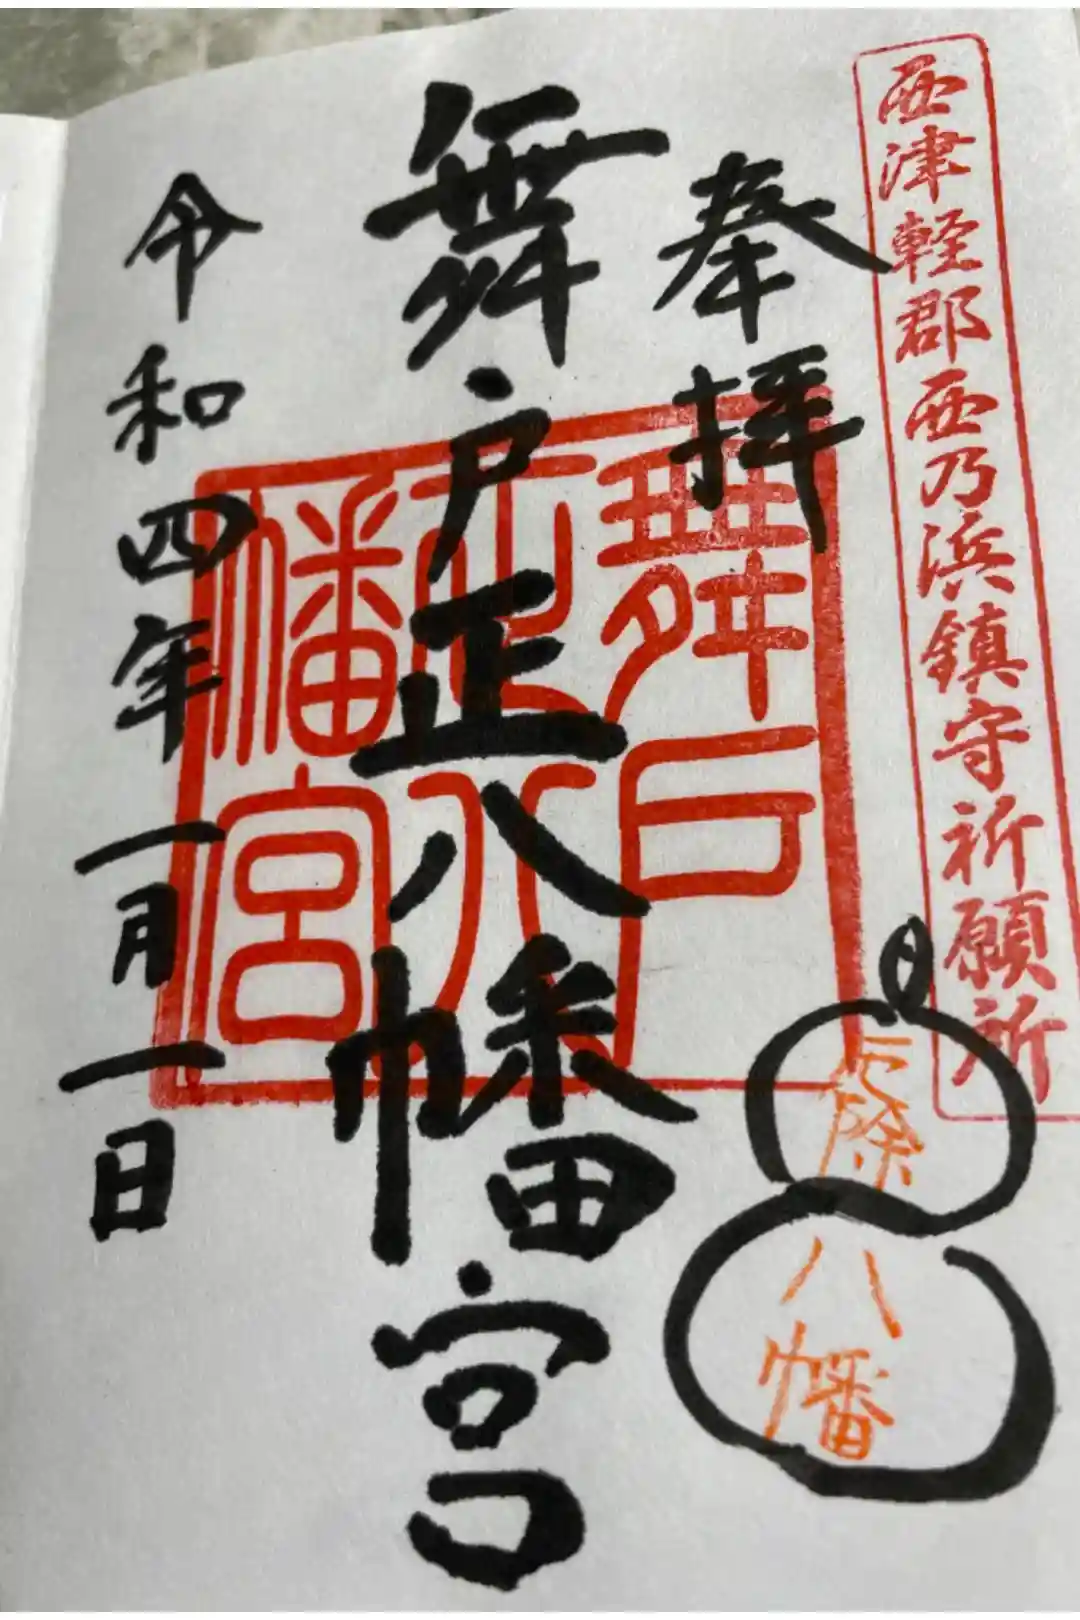 西津軽郡西乃浜鎮守祈願所
奉拝
舞戸正八幡宮
舞戸
正八
幡宮
令和四年一月一日
厄除
八幡